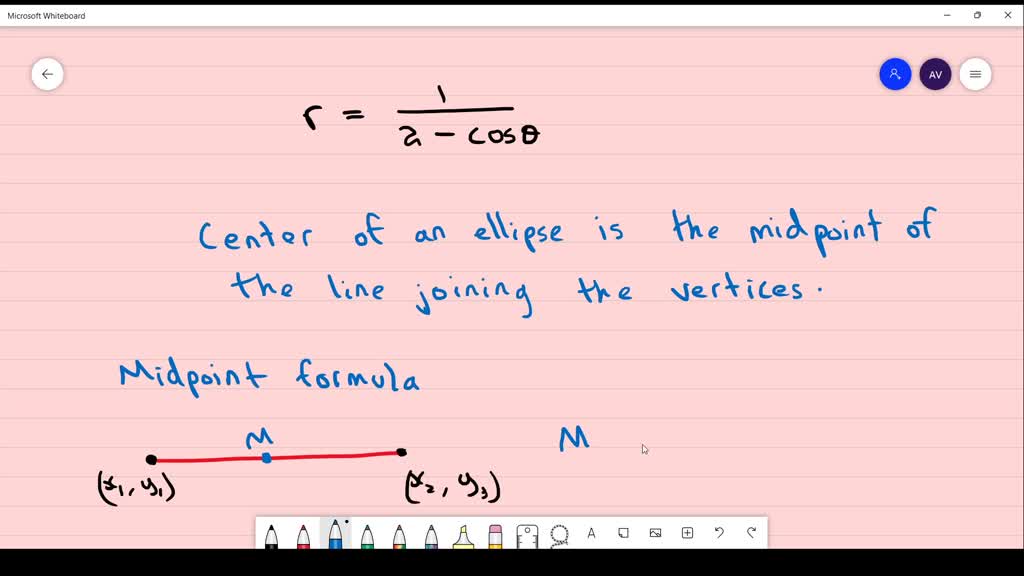 Microsoft Whiteboard
AV
r = 1 / 2 - cosθ
Center of an ellipse is the midpoint of
the line joining the vertices.
Midpoint formula
M
M
(x₁, y₁)
(x₂, y₃)
A